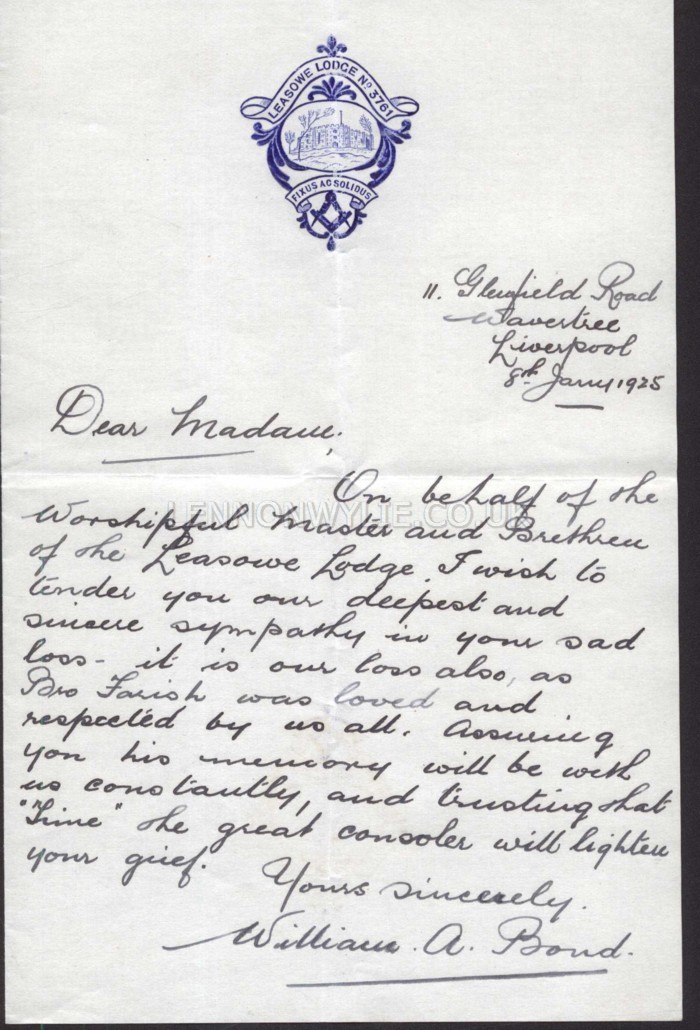 LEASOWE LODGE No 3761
FIXUS AC SOLIDUS
11. Glenfield Road
Wavertree
Liverpool
8th Jany 1925
Dear Madam,
On behalf of the
LENNONWYLIE.CO.UK
Worshipful Master and Brethren
of the Leasowe Lodge I wish to
tender you our deepest and
sincere sympathy in your sad
loss - it is our loss also, as
Bro Farish was loved and
respected by us all. Assuring
you his memory will be with
us constantly, and trusting that
"Time" the great consoler will lighten
your grief.
Yours sincerely.
William. A. Bond.